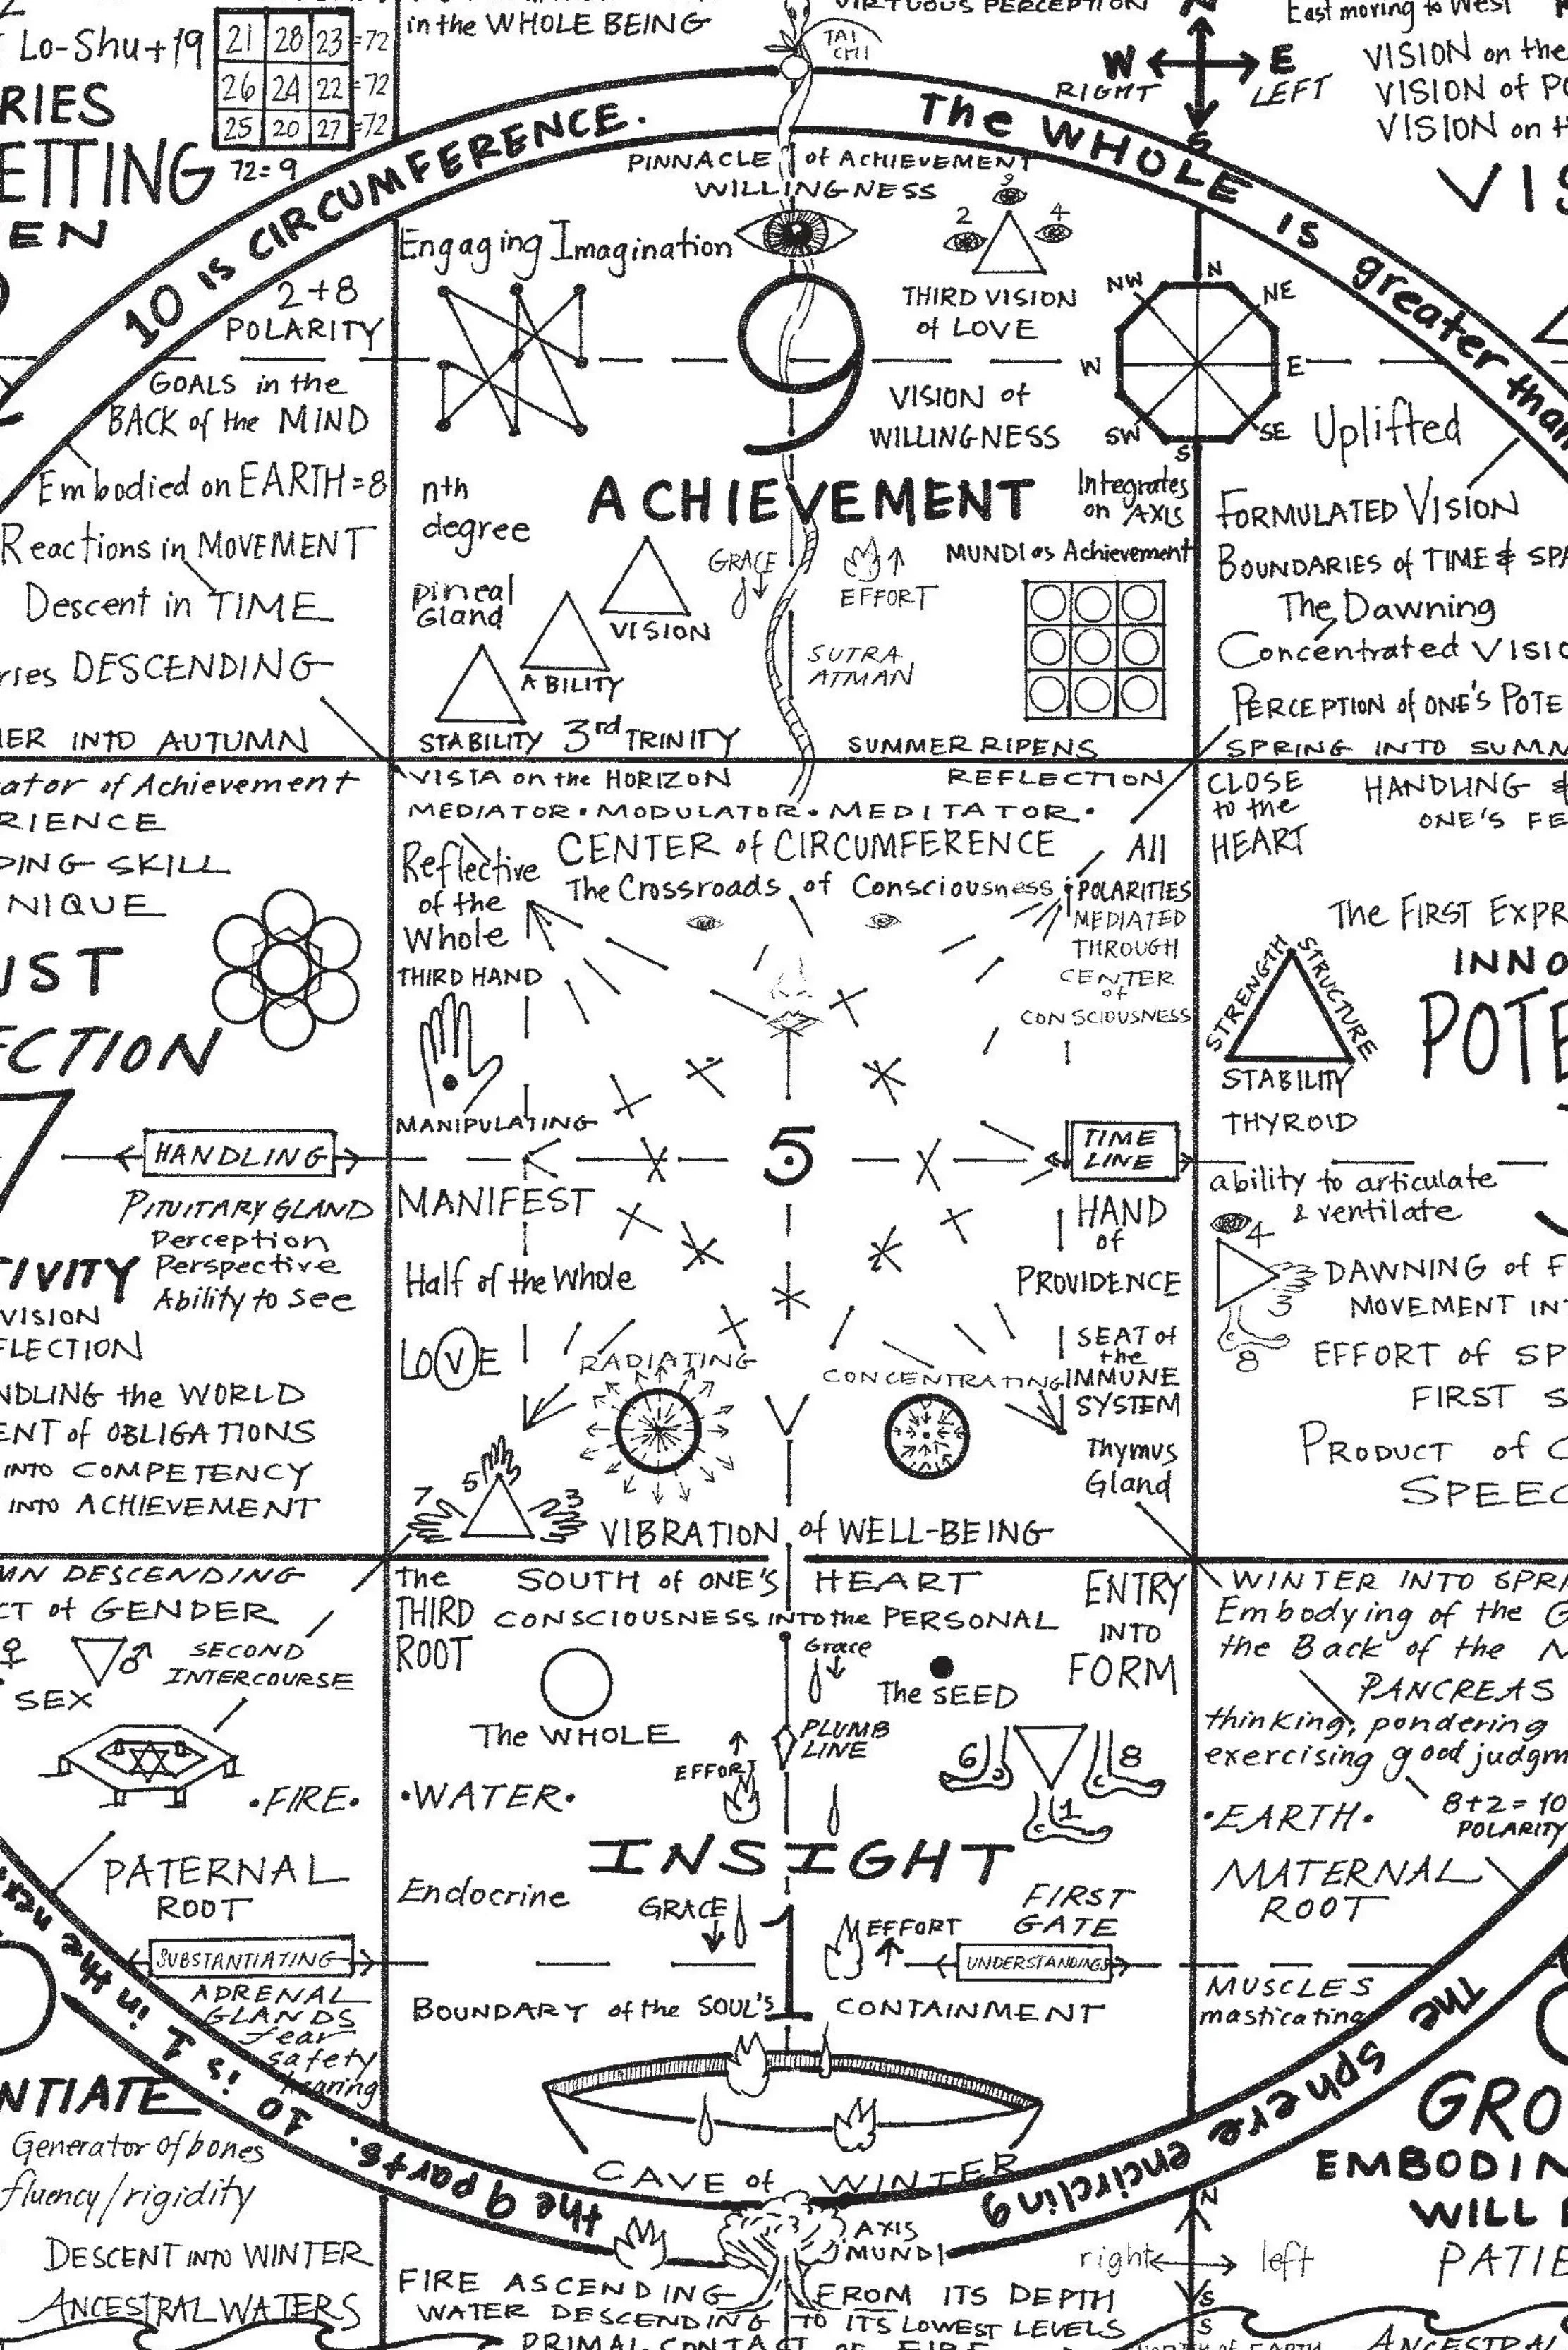 in the WHOLE BEING
VIRTUOUS PERCEPTION
TAI
CHI
N
W
E
S
RIGHT
LEFT
East moving to West
VISION on the
VISION of PO
VISION on th
VIS
Lo-Shu+19
21 28 23 =72
26 24 22 =72
25 20 27 =72
72=9
RIES
ETTING
EN
10 is CIRCUMFERENCE.
The WHOLE is greater than
2+8
POLARITY
GOALS in the
BACK of the MIND
Embodied on EARTH=8
Reactions in MOVEMENT
Descent in TIME
ries DESCENDING
ER INTO AUTUMN
PINNACLE of ACHIEVEMENT
WILLINGNESS
Engaging Imagination
9
2
4
THIRD VISION
of LOVE
9
VISION of
WILLINGNESS
N
NE
E
SE
S
SW
W
NW
nth
degree
ACHIEVEMENT
Integrates
on AXIS
MUNDI as Achievement
pineal
Gland
GRACE
EFFORT
VISION
ABILITY
STABILITY
3rd TRINITY
SUTRA
ATMAN
SUMMER RIPENS
Uplifted
FORMULATED VISION
BOUNDARIES of TIME & SPA
The Dawning
Concentrated VISIO
PERCEPTION of ONE'S POTE
SPRING INTO SUMM
ator of Achievement
RIENCE
PING SKILL
NIQUE
UST
ECTION
7
HANDLING
PITUITARY GLAND
Perception
Perspective
Ability to see
TIVITY
VISION
FLECTION
NDLING the WORLD
ENT of OBLIGATIONS
INTO COMPETENCY
INTO ACHIEVEMENT
VISTA on the HORIZON
REFLECTION
MEDIATOR • MODULATOR • MEDITATOR •
CENTER of CIRCUMFERENCE
The Crossroads of Consciousness
Reflective
of the
Whole
All
POLARITIES
MEDIATED
THROUGH
CENTER
of
CONSCIOUSNESS
THIRD HAND
MANIPULATING
5
TIME
LINE
MANIFEST
HAND
of
PROVIDENCE
Half of the Whole
LOVE
SEAT of
the
IMMUNE
SYSTEM
RADIATING
CONCENTRATING
Thymus
Gland
7
5
3
VIBRATION of WELL-BEING
CLOSE
to the
HEART
HANDLING &
ONE'S FE
The FIRST EXPR
INNO
POTE
STRENGTH
STRUCTURE
STABILITY
THYROID
ability to articulate
& ventilate
4
3
8
DAWNING of F
MOVEMENT INT
EFFORT of SP
FIRST S
PRODUCT of C
SPEEC
MN DESCENDING
CT of GENDER
♀
♂
SEX
SECOND
INTERCOURSE
•FIRE•
PATERNAL
ROOT
SUBSTANTIATING
ADRENAL
GLANDS
fear
safety
hearing
The
THIRD
ROOT
SOUTH of ONE'S HEART
CONSCIOUSNESS INTO the PERSONAL
ENTRY
INTO
FORM
The WHOLE
Grace
The SEED
PLUMB
LINE
EFFORT
6
8
1
•WATER•
INSIGHT
Endocrine
GRACE
1
EFFORT
FIRST
GATE
UNDERSTANDINGS
BOUNDARY of the SOUL'S CONTAINMENT
CAVE of WINTER
WINTER INTO SPRI
Embodying of the G
the Back of the M
PANCREAS
thinking, pondering
exercising good judgm
•EARTH•
8+2=10
POLARITY
MATERNAL
ROOT
MUSCLES
masticating
The sphere encircling
the 9 parts. 10 is 1 in the next
NTIATE
Generator of bones
fluency/rigidity
DESCENT INTO WINTER
ANCESTRAL WATERS
AXIS
MUNDI
FIRE ASCENDING FROM ITS DEPTH
WATER DESCENDING TO ITS LOWEST LEVELS
PRIMAL CONTACT OF FIRE
N
right
left
S
GRO
EMBODIN
WILL
PATIE
ANCESTRAL